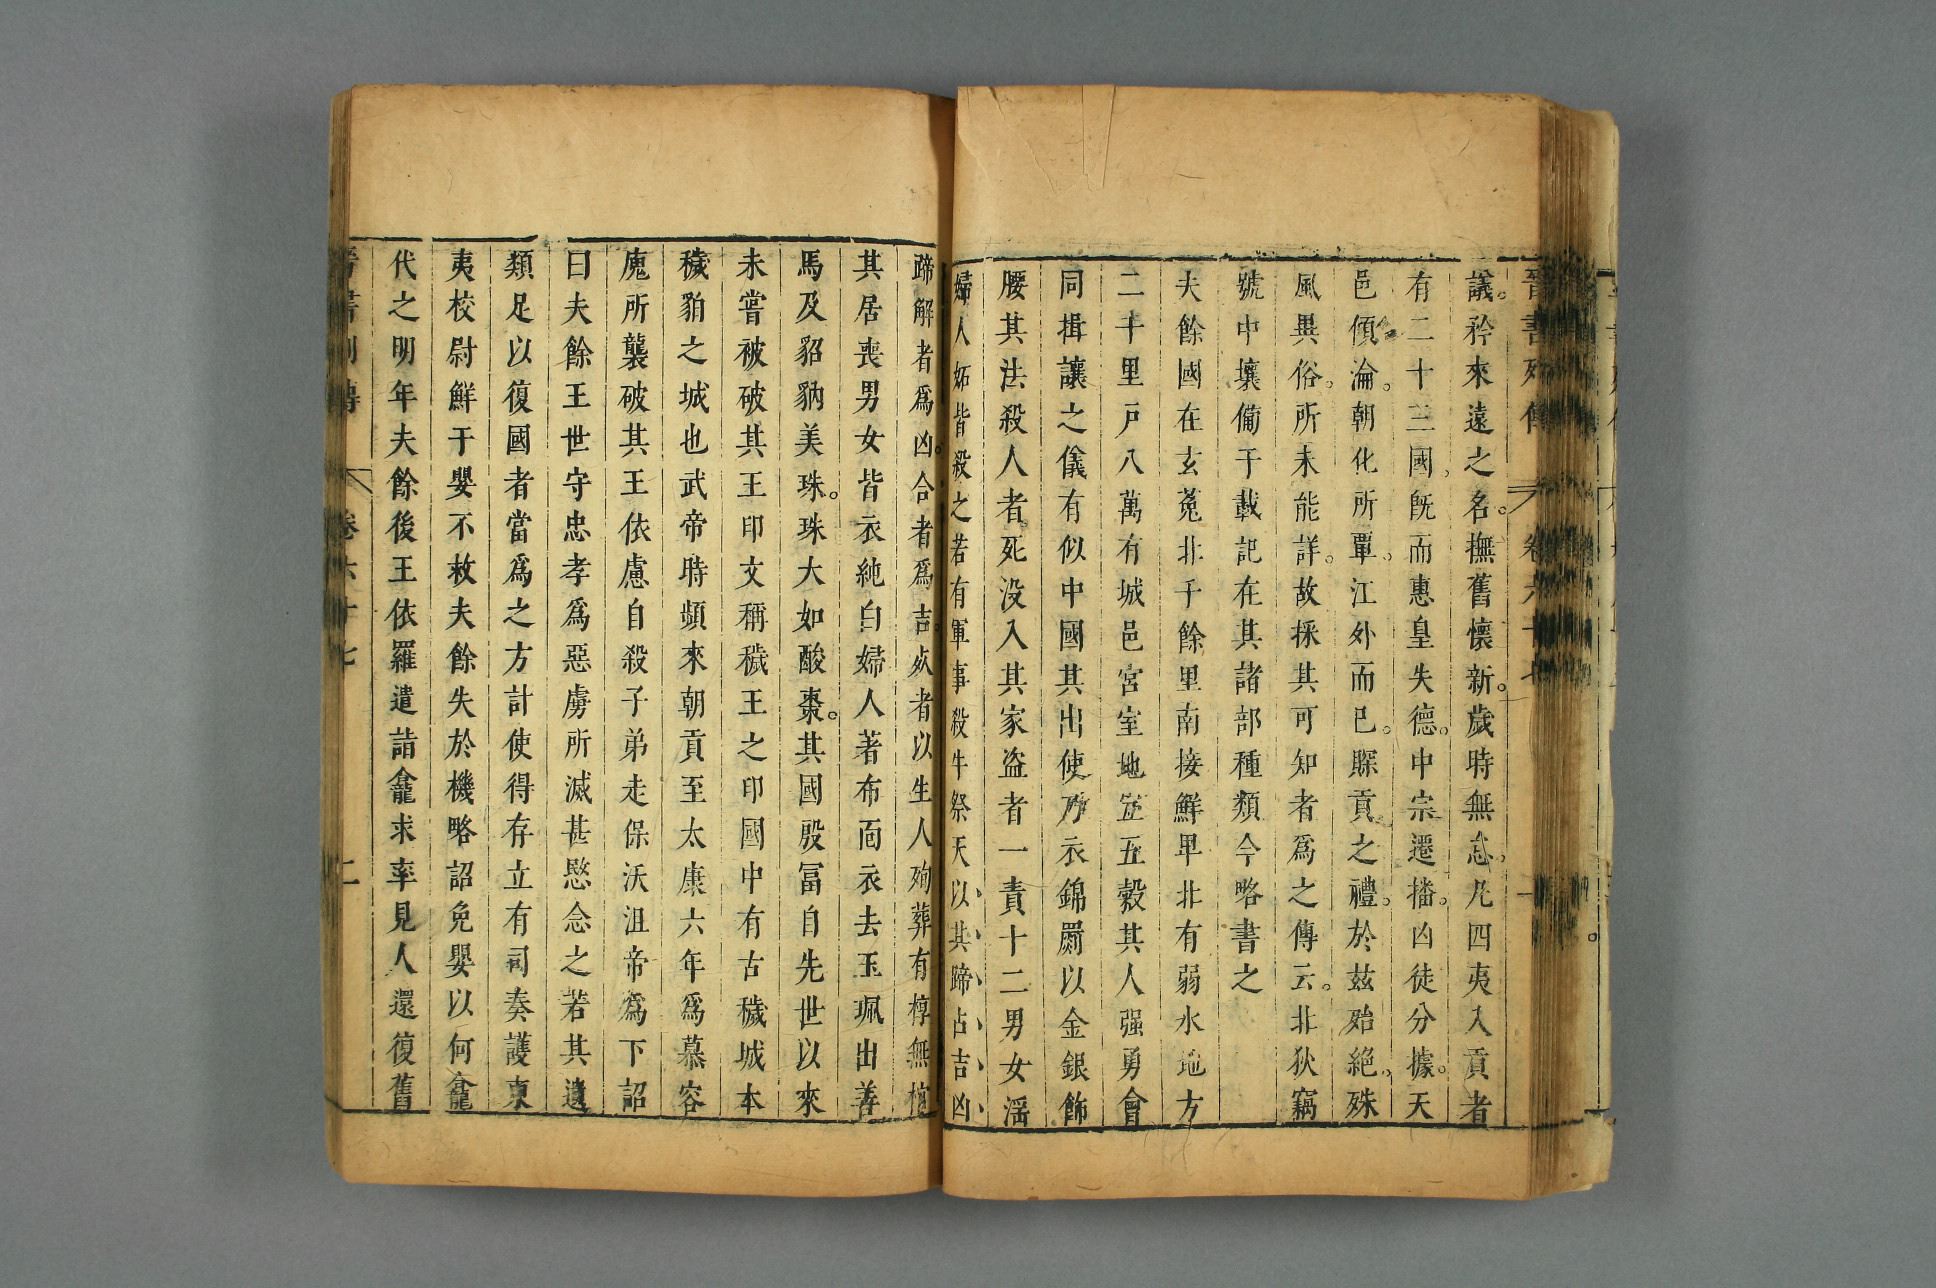 晉書列傳 卷六十七 一
議矜來遠之名撫舊懷新歲時無怠凡四夷入貢者
有二十三國旣而惠皇失德中宗遷播凶徒分據天
邑傾淪朝化所覃江外而已賝貢之禮於兹殆絶殊
風異俗所未能詳故採其可知者爲之傳云北狄竊
號中壤備于載記在其諸部種類今略書之
夫餘國在玄菟北千餘里南接鮮卑北有弱水地方
二千里戸八萬有城邑宮室地宜五穀其人强勇會
同揖讓之儀有似中國其出使乃衣錦罽以金銀飾
腰其法殺人者死没入其家盗者一責十二男女淫
婦人妬皆殺之若有軍事殺牛祭天以其蹄占吉凶
蹄解者爲凶合者爲吉死者以生人殉葬有椁無棺
其居喪男女皆衣純白婦人著布面衣去玉珮出善
馬及貂豽美珠珠大如酸棗其國殷冨自先世以來
未嘗被破其王印文稱穢王之印國中有古穢城本
穢貊之城也武帝時頻來朝貢至太康六年爲慕容
廆所襲破其王依慮自殺子弟走保沃沮帝爲下詔
曰夫餘王世守忠孝爲惡虜所滅甚愍念之若其遺
類足以復國者當爲之方計使得存立有司奏護東
夷校尉鮮于嬰不救夫餘失於機略詔免嬰以何龕
代之明年夫餘後王依羅遣詣龕求率見人還復舊
晉書列傳 卷六十七 二